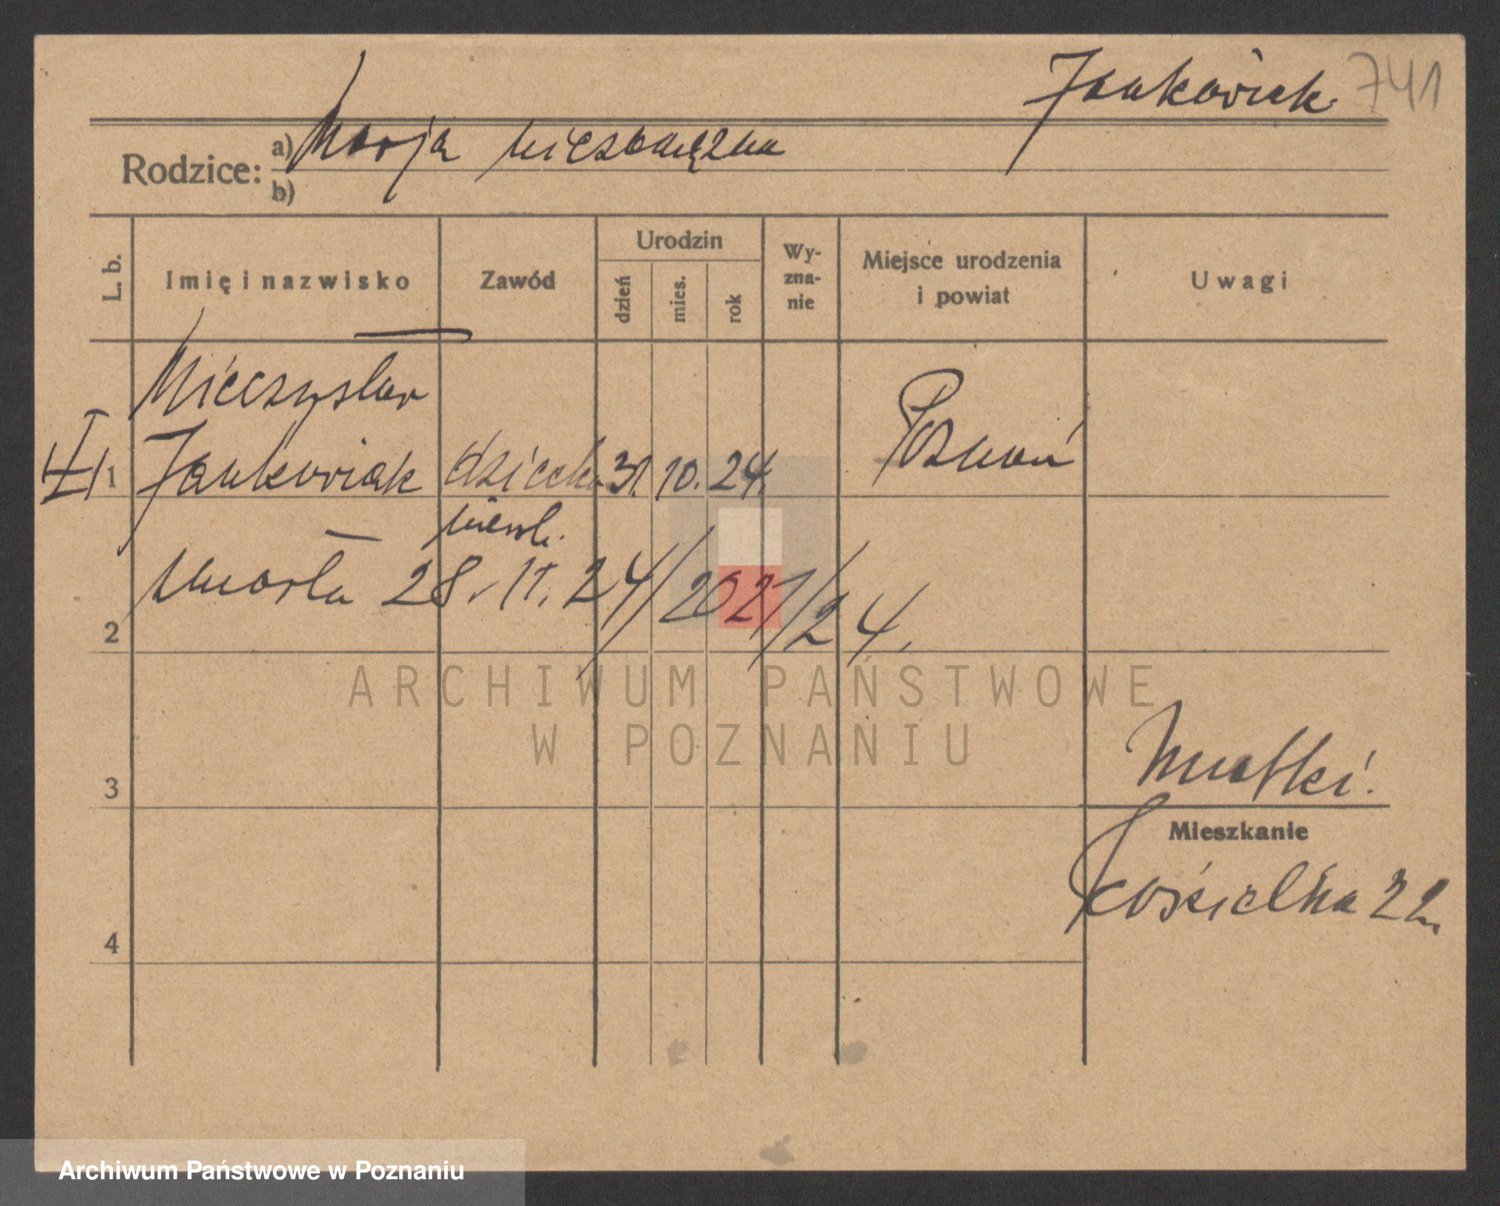 Jankowiak 741
Rodzice: a) Marja niezamężna
b)
L. b.
Imię i nazwisko
Zawód
Urodzin
dzień
mies.
rok
Wy-
zna-
nie
Miejsce urodzenia
i powiat
Uwagi
Mieczysław
1 Jankowiak dziecko 31. 10. 24. Poznań
nieśl.
Umarła 28. 11. 24/2021/24.
2
3
4
Matki.
Mieszkanie
Kościelna 22
ARCHIWUM PAŃSTWOWE
W POZNANIU
Archiwum Państwowe w Poznaniu